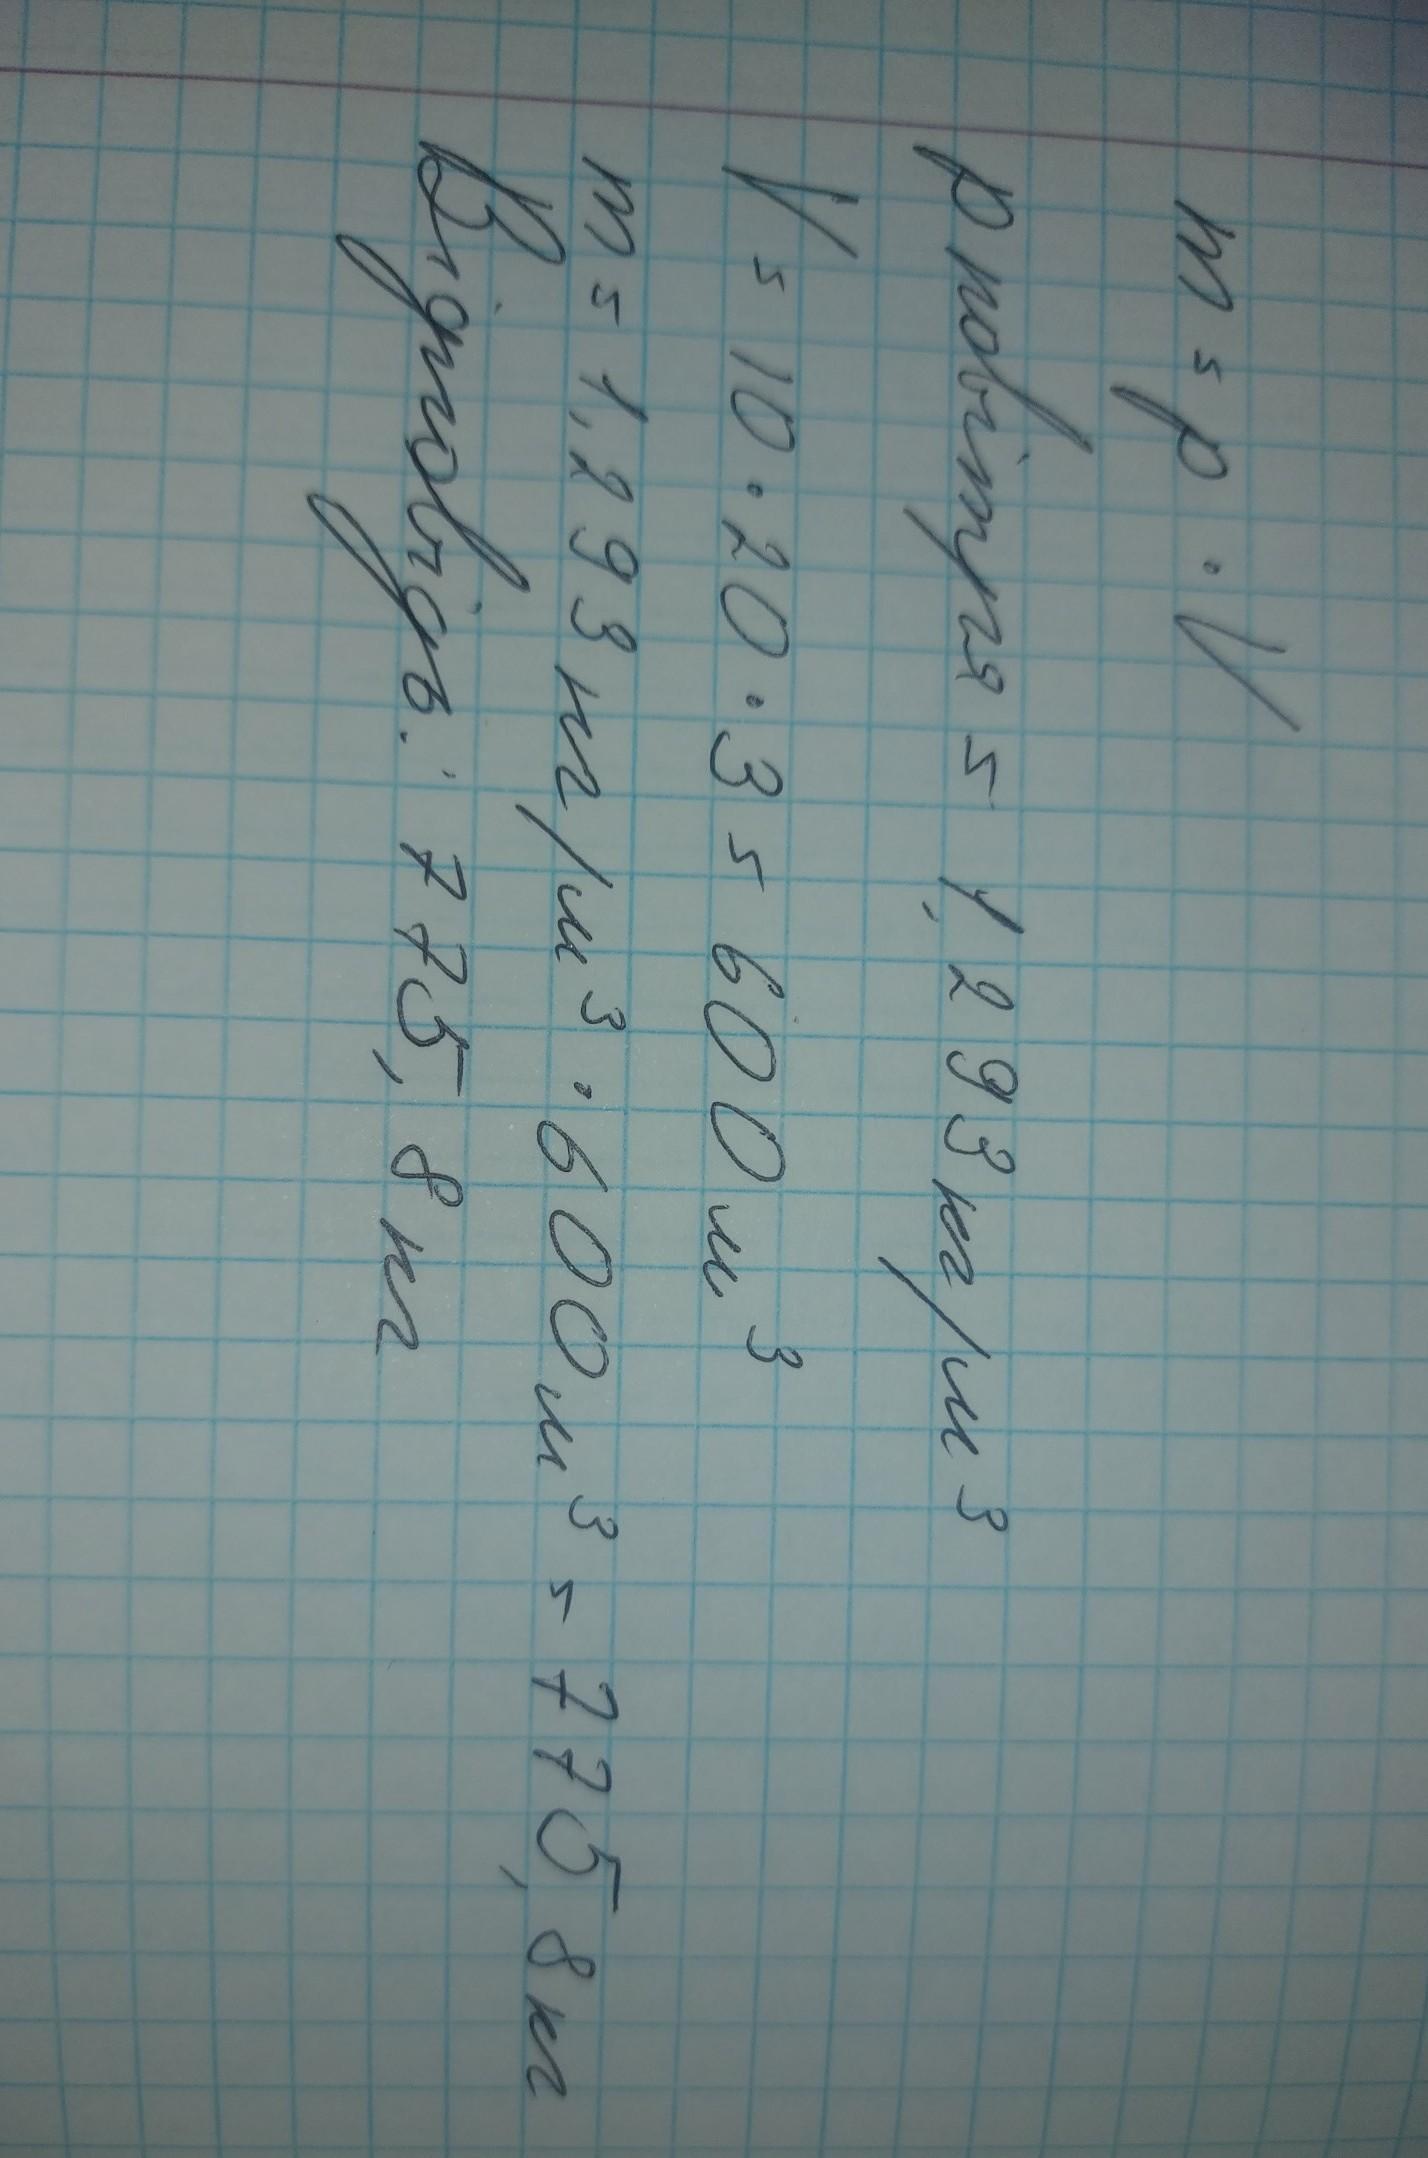 m = ρ · V
ρ повітря = 1,293 кг/м³
V = 10 · 20 · 3 = 600 м³
m = 1,293 кг/м³ · 600 м³ = 775,8 кг
Відповідь: 775,8 кг